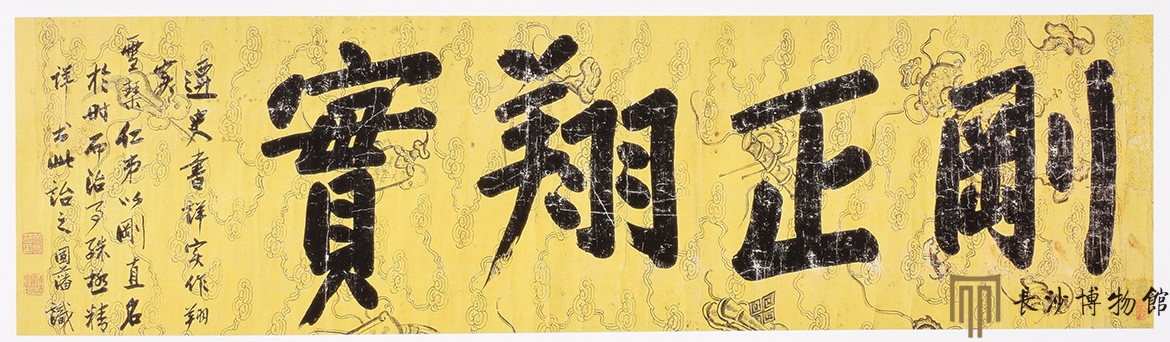 剛正翔實
遷史書詳實作翔
實
雪琴仁弟以剛直名
於時而治事殊極精
詳書此詒之國藩識
長沙博物館